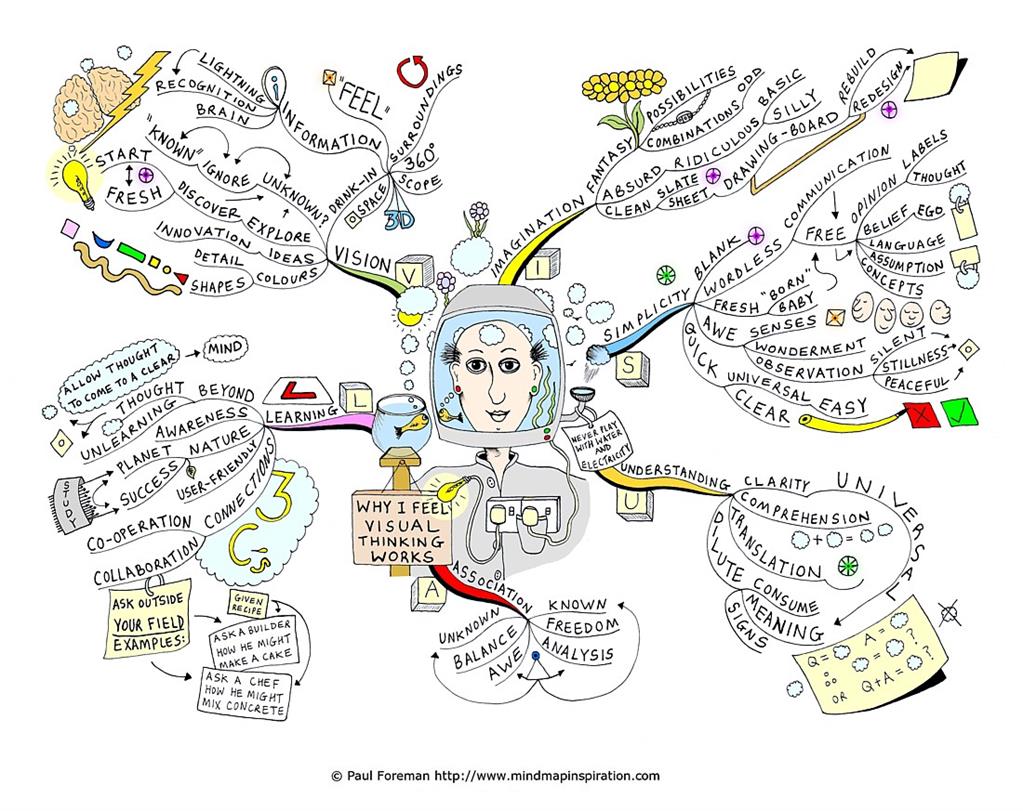 LIGHTNING
RECOGNITION
BRAIN
i
INFORMATION
"FEEL"
SURROUNDINGS
360°
SCOPE
DRINK-IN
SPACE
3D
START
FRESH
"KNOWN"
IGNORE
UNKNOWN?
DISCOVER
EXPLORE
INNOVATION
IDEAS
DETAIL
SHAPES
COLOURS
VISION
V
IMAGINATION
I
FANTASY
POSSIBILITIES
COMBINATIONS
ODD
ABSURD
RIDICULOUS
BASIC
SILLY
CLEAN
SLATE
SHEET
DRAWING-BOARD
REBUILD
REDESIGN
SIMPLICITY
S
BLANK
WORDLESS
COMMUNICATION
FREE
OPINION
LABELS
THOUGHT
BELIEF
EGO
LANGUAGE
ASSUMPTION
CONCEPTS
FRESH
"BORN"
BABY
AWE
SENSES
WONDERMENT
OBSERVATION
SILENT
STILLNESS
PEACEFUL
QUICK
UNIVERSAL
EASY
CLEAR
ALLOW THOUGHT
TO COME TO A CLEAR
MIND
LEARNING
L
L
UNLEARNING
THOUGHT
BEYOND
AWARENESS
PLANET
NATURE
SUCCESS
USER-FRIENDLY
STUDY
CO-OPERATION
CONNECTIONS
COLLABORATION
3
Cs
ASK OUTSIDE
YOUR FIELD
EXAMPLES:
GIVEN
RECIPE
ASK A BUILDER
HOW HE MIGHT
MAKE A CAKE
ASK A CHEF
HOW HE MIGHT
MIX CONCRETE
WHY I FEEL
VISUAL
THINKING
WORKS
NEVER PLAY
WITH WATER
AND
ELECTRICITY
ASSOCIATION
A
UNKNOWN
BALANCE
AWE
KNOWN
FREEDOM
ANALYSIS
UNDERSTANDING
U
CLARITY
UNIVERSAL
COMPREHENSION
+ =
TRANSLATION
DILUTE
CONSUME
MEANING
SIGNS
Q = A = ?
=
OR Q+A = ?
© Paul Foreman http://www.mindmapinspiration.com